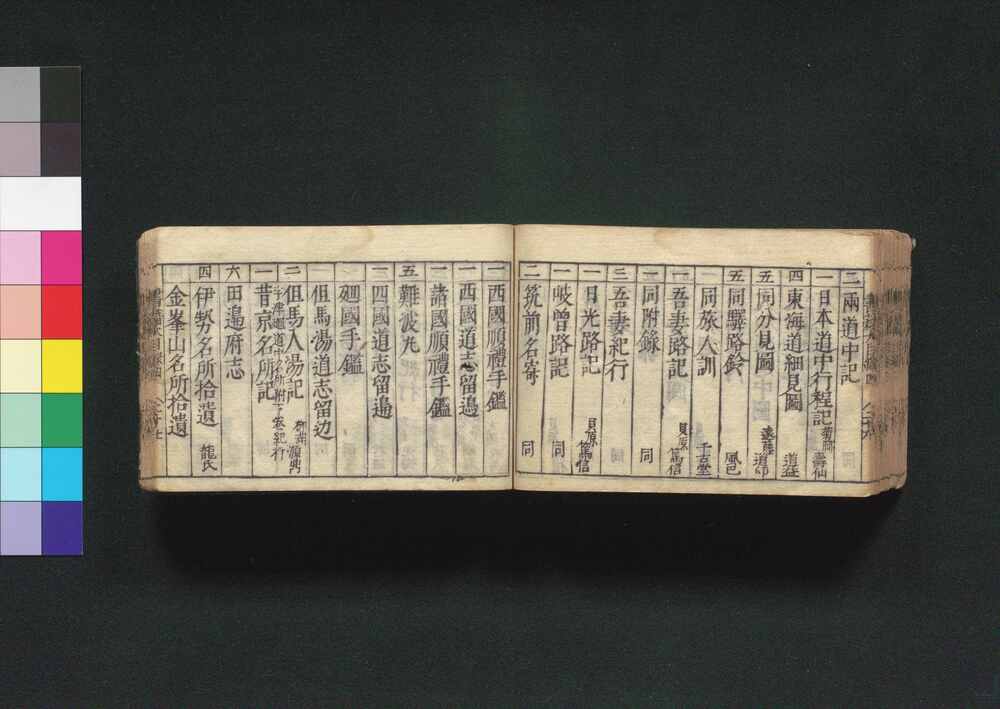 二 兩道中記
一 日本道中行程記 菊岡 壽仙
四 東海道細見圖 道益
五 同分見圖 遠藤 道印
五 同驛路鈴 風巴
一 同旅人訓 千舌堂
一 吾妻路記 貝原 篤信
一 同附錄 同
三 吾妻紀行
一 日光路記 貝原 篤信
一 岐曽路記 同
二 筑前名寄 同
一 西國順禮手鑑
一 西國道志留邉
一 諸國順禮手鑑
五 難波丸
一 四國道志留邉
廻國手鑑
一 但馬湯道志留边
二 但馬入湯記
一 昔京名所記
六 田邉府志
四 伊勢名所拾遺 龍氏
金峯山名所拾遺